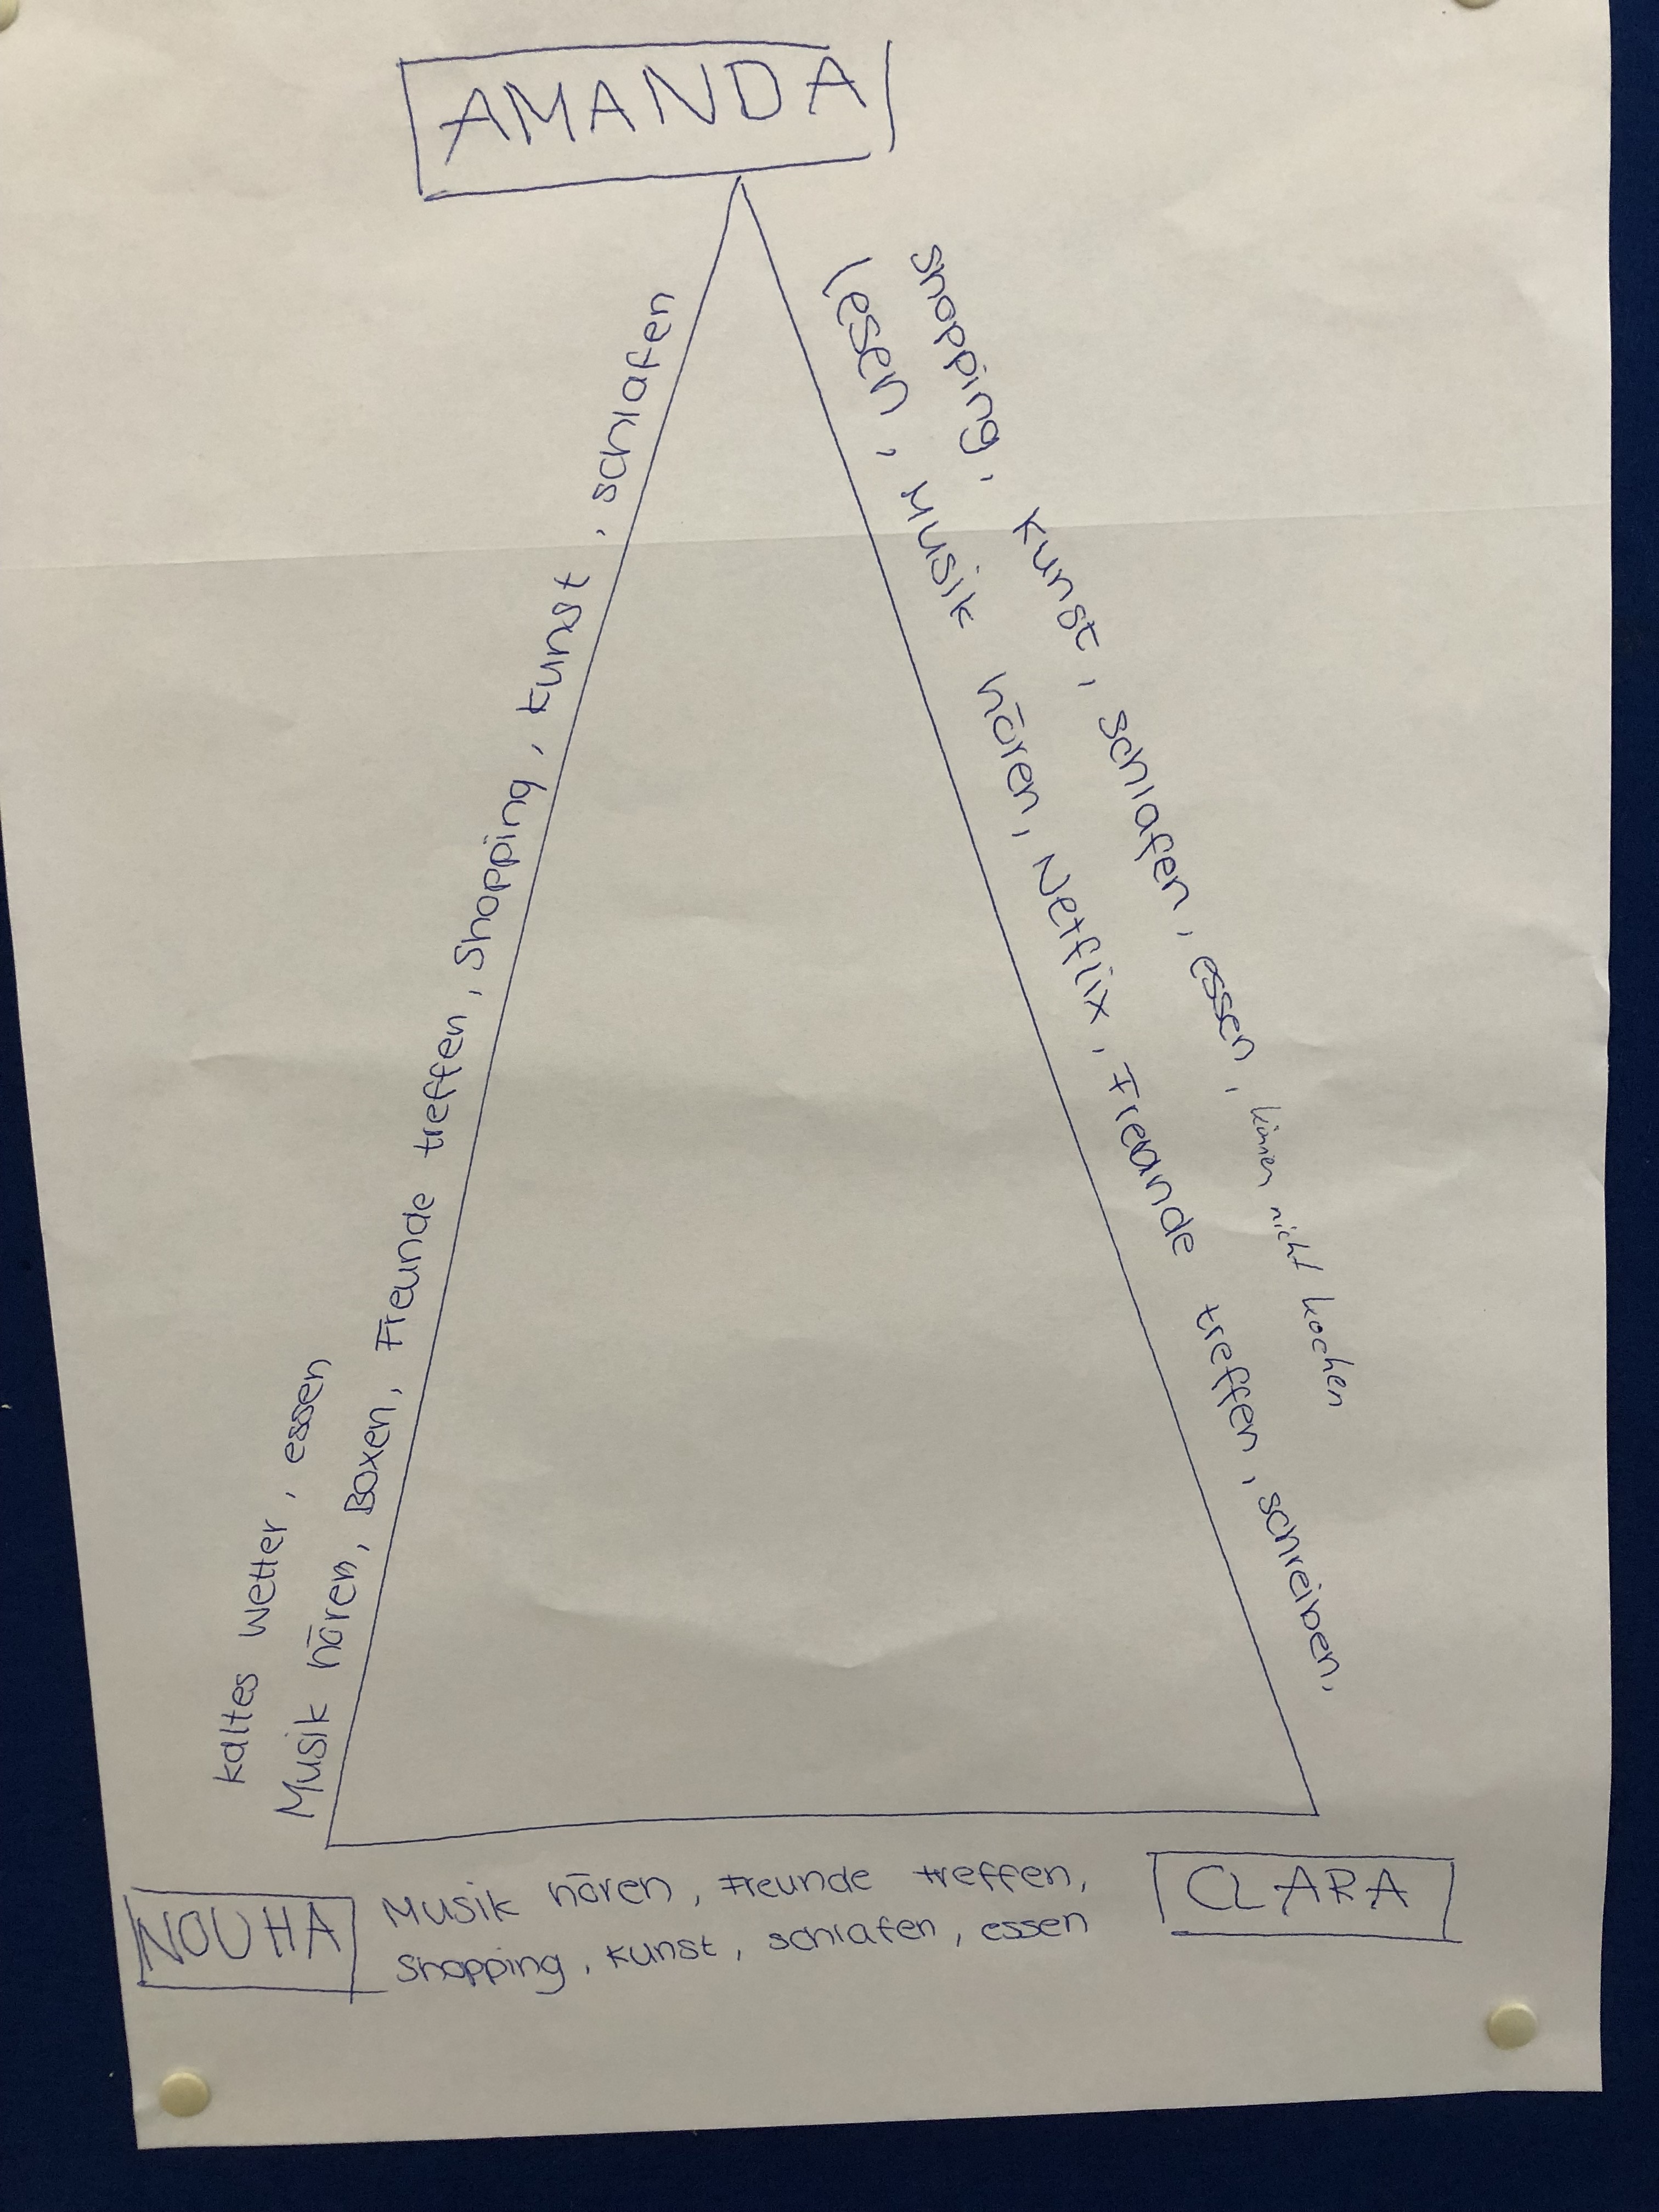 AMANDA
kaltes Wetter, essen
Musik hören, Boxen, Freunde treffen, Shopping, Kunst, schlafen
Shopping, Kunst, schlafen, essen, können nicht kochen
Lesen, Musik hören, Netflix, Freunde treffen, schreiben,
NOUHA
Musik hören, Freunde treffen,
Shopping, Kunst, schlafen, essen
CLARA